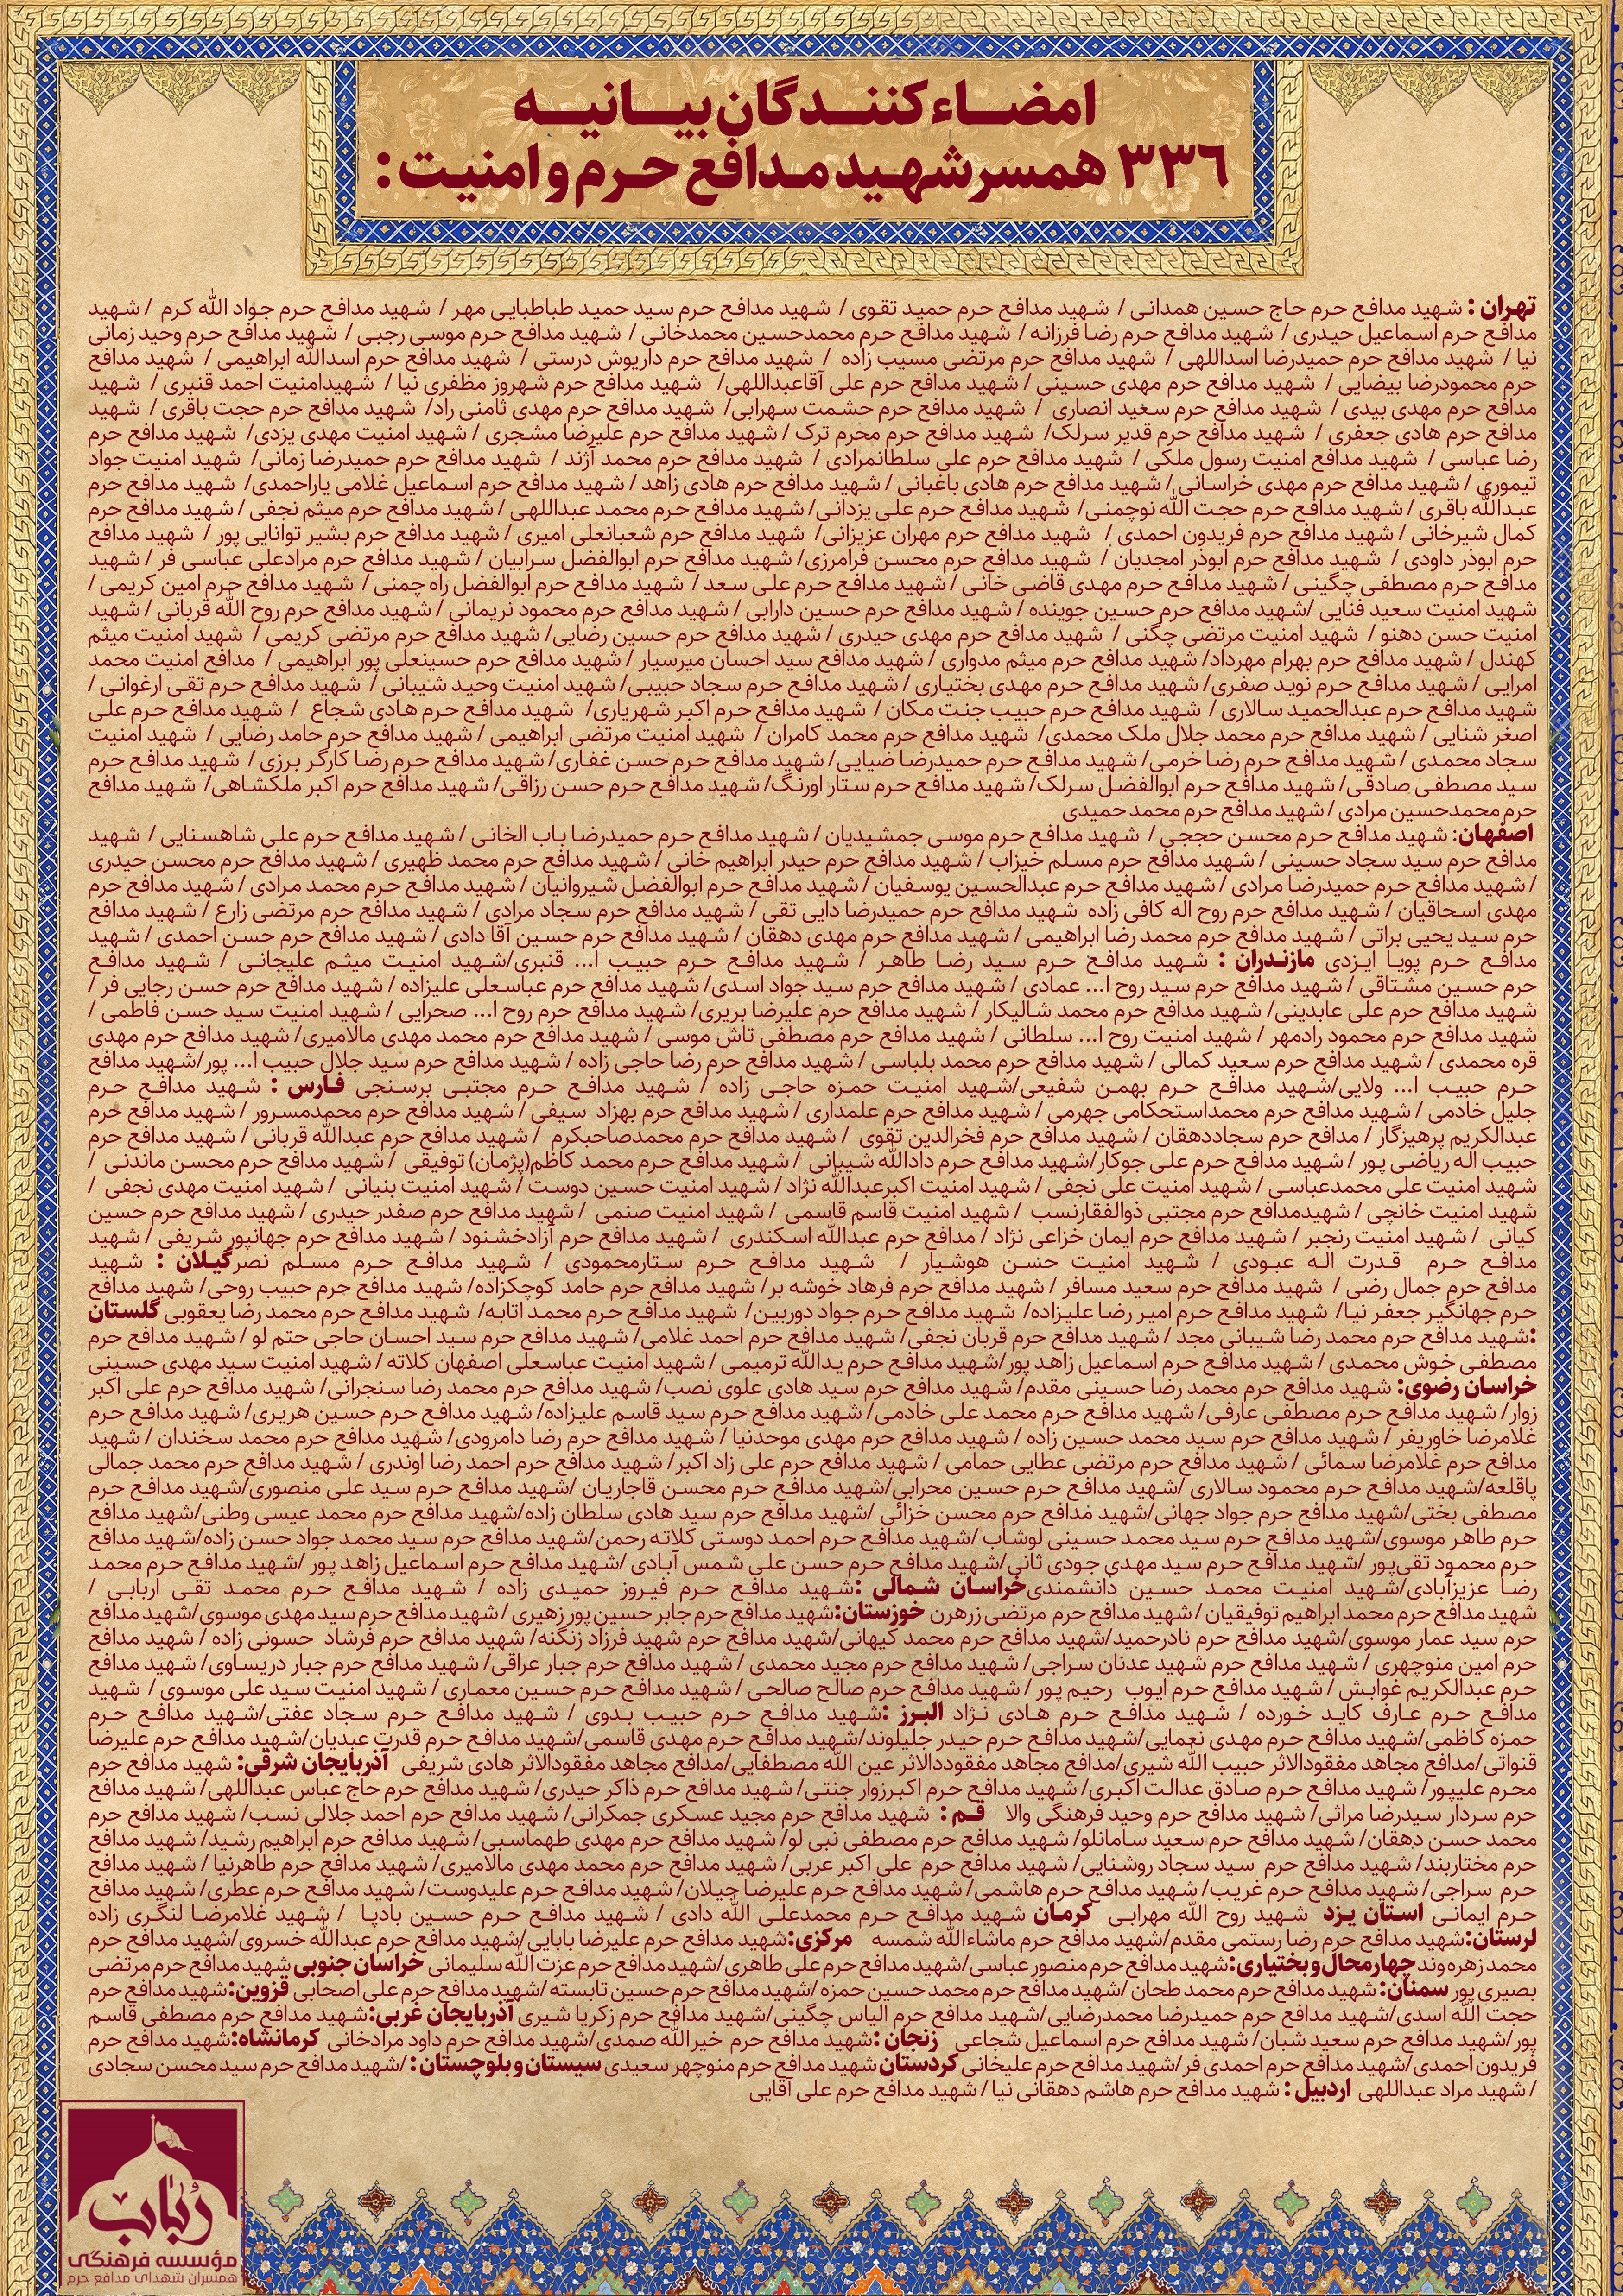 امضاء کنندگان بیانیه
۳۳٦ همسر شهید مدافع حرم و امنیت:
تهران : شهید مدافع حرم حاج حسین همدانی / شهید مدافع حرم حمید تقوی / شهید مدافع حرم سید حمید طباطبایی مهر / شهید مدافع حرم جواد الله کرم / شهید
مدافع حرم اسماعیل حیدری / شهید مدافع حرم رضا فرزانه / شهید مدافع حرم محمدحسین محمدخانی / شهید مدافع حرم موسی رجبی / شهید مدافع حرم وحید زمانی
نیا / شهید مدافع حرم حمیدرضا اسداللهی / شهید مدافع حرم مرتضی مسیب زاده / شهید مدافع حرم داریوش درستی / شهید مدافع حرم اسدالله ابراهیمی / شهید مدافع
حرم محمودرضا بیضایی / شهید مدافع حرم مهدی حسینی / شهید مدافع حرم علی آقاعبداللهی/ شهید مدافع حرم شهروز مظفری نیا / شهیدامنیت احمد قنبری / شهید
مدافع حرم مهدی بیدی / شهید مدافع حرم سعید انصاری / شهید مدافع حرم حشمت سهرابی/ شهید مدافع حرم مهدی ثامنی راد/ شهید مدافع حرم حجت باقری / شهید
مدافع حرم هادی جعفری / شهید مدافع حرم قدیر سرلک/ شهید مدافع حرم محرم ترک / شهید مدافع حرم علیرضا مشجری / شهید امنیت مهدی یزدی/ شهید مدافع حرم
رضا عباسی / شهید مدافع امنیت رسول ملکی / شهید مدافع حرم علی سلطانمرادی / شهید مدافع حرم محمد آژند / شهید مدافع حرم حمیدرضا زمانی/ شهید امنیت جواد
تیموری / شهید مدافع حرم مهدی خراسانی / شهید مدافع حرم هادی باغبانی / شهید مدافع حرم هادی زاهد / شهید مدافع حرم اسماعیل غلامی یاراحمدی/ شهید مدافع حرم
عبدالله باقری / شهید مدافع حرم حجت الله نوچمنی/ شهید مدافع حرم علی یزدانی/ شهید مدافع حرم محمد عبداللهی / شهید مدافع حرم میثم نجفی / شهید مدافع حرم
کمال شیرخانی / شهید مدافع حرم فریدون احمدی / شهید مدافع حرم مهران عزیزانی/ شهید مدافع حرم شعبانعلی امیری / شهید مدافع حرم بشیر توانایی پور / شهید مدافع
حرم ابوذر داودی / شهید مدافع حرم ابوذر امجدیان / شهید مدافع حرم محسن فرامرزی/ شهید مدافع حرم ابوالفضل سرابیان / شهید مدافع حرم مرادعلی عباسی فر / شهید
مدافع حرم مصطفی چگینی / شهید مدافع حرم مهدی قاضی خانی / شهید مدافع حرم علی سعد / شهید مدافع حرم ابوالفضل راه چمنی / شهید مدافع حرم امین کریمی /
شهید امنیت سعید فنایی /شهید مدافع حرم حسین جوینده / شهید مدافع حرم حسین دارابی / شهید مدافع حرم محمود نریمانی / شهید مدافع حرم روح الله قربانی / شهید
امنیت حسن دهنو / شهید امنیت مرتضی چگنی / شهید مدافع حرم مهدی حیدری / شهید مدافع حرم حسین رضایی/ شهید مدافع حرم مرتضی کریمی / شهید امنیت میثم
کهندل / شهید مدافع حرم بهرام مهرداد/ شهید مدافع حرم میثم مدواری / شهید مدافع سید احسان میرسیار / شهید مدافع حرم حسینعلی پور ابراهیمی / مدافع امنیت محمد
امرایی / شهید مدافع حرم نوید صفری/ شهید مدافع حرم مهدی بختیاری / شهید مدافع حرم سجاد حبیبی/ شهید امنیت وحید شیبانی / شهید مدافع حرم تقی ارغوانی /
شهید مدافع حرم عبدالحمید سالاری / شهید مدافع حرم حبیب جنت مکان / شهید مدافع حرم اکبر شهریاری/ شهید مدافع حرم هادی شجاع / شهید مدافع حرم علی
اصغر شنایی / شهید مدافع حرم محمد جلال ملک محمدی/ شهید مدافع حرم محمد کامران / شهید امنیت مرتضی ابراهیمی / شهید مدافع حرم حامد رضایی / شهید امنیت
سجاد محمدی / شهید مدافع حرم رضا خرمی/ شهید مدافع حرم حمیدرضا ضیایی/ شهید مدافع حرم حسن غفاری/ شهید مدافع حرم رضا کارگر برزی / شهید مدافع حرم
سید مصطفی صادقی/ شهید مدافع حرم ابوالفضل سرلک/ شهید مدافع حرم ستار اورنگ/ شهید مدافع حرم حسن رزاقی/ شهید مدافع حرم اکبر ملکشاهی/ شهید مدافع
حرم محمدحسین مرادی / شهید مدافع حرم محمد حمیدی
اصفهان: شهید مدافع حرم محسن حججی / شهید مدافع حرم موسی جمشیدیان / شهید مدافع حرم حمیدرضا باب الخانی / شهید مدافع حرم علی شاهسنایی / شهید
مدافع حرم سید سجاد حسینی / شهید مدافع حرم مسلم خیزاب / شهید مدافع حرم حیدر ابراهیم خانی / شهید مدافع حرم محمد ظهیری / شهید مدافع حرم محسن حیدری
/ شهید مدافع حرم حمیدرضا مرادی / شهید مدافع حرم عبدالحسین یوسفیان / شهید مدافع حرم ابوالفضل شیروانیان / شهید مدافع حرم محمد مرادی / شهید مدافع حرم
مهدی اسحاقیان / شهید مدافع حرم روح اله کافی زاده شهید مدافع حرم حمیدرضا دایی تقی / شهید مدافع حرم سجاد مرادی / شهید مدافع حرم مرتضی زارع / شهید مدافع
حرم سید یحیی براتی / شهید مدافع حرم محمد رضا ابراهیمی / شهید مدافع حرم مهدی دهقان / شهید مدافع حرم حسین آقا دادی / شهید مدافع حرم حسن احمدی / شهید
مدافع حرم پویا ایزدی مازندران : شهید مدافع حرم سید رضا طاهر / شهید مدافع حرم حبیب ا... قنبری/شهید امنیت میثم علیجانی / شهید مدافع
حرم حسین مشتاقی / شهید مدافع حرم سید روح ا... عمادی / شهید مدافع حرم سید جواد اسدی/ شهید مدافع حرم عباسعلی علیزاده / شهید مدافع حرم حسن رجایی فر /
شهید مدافع حرم علی عابدینی/ شهید مدافع حرم محمد شالیکار / شهید مدافع حرم علیرضا بریری/ شهید مدافع حرم روح ا... صحرایی / شهید امنیت سید حسن فاطمی /
شهید مدافع حرم محمود رادمهر / شهید امنیت روح ا... سلطانی / شهید مدافع حرم مصطفی تاش موسی / شهید مدافع حرم محمد مهدی مالامیری/ شهید مدافع حرم مهدی
قره محمدی / شهید مدافع حرم سعید کمالی / شهید مدافع حرم محمد بلباسی / شهید مدافع حرم رضا حاجی زاده / شهید مدافع حرم سید جلال حبیب ا... پور/شهید مدافع
حرم حبیب ا... ولایی/شهید مدافع حرم بهمن شفیعی/شهید امنیت حمزه حاجی زاده / شهید مدافع حرم مجتبی برسنجی فارس : شهید مدافع حرم
جلیل خادمی / شهید مدافع حرم محمداستحکامی جهرمی / شهید مدافع حرم علمداری / شهید مدافع حرم بهزاد سیفی / شهید مدافع حرم محمدمسرور / شهید مدافع حرم
عبدالکریم پرهیزگار / مدافع حرم سجاددهقان / شهید مدافع حرم فخرالدین تقوی / شهید مدافع حرم محمدصاحبکرم / شهید مدافع حرم عبدالله قربانی / شهید مدافع حرم
حبیب اله ریاضی پور / شهید مدافع حرم علی جوکار/شهید مدافع حرم دادالله شیبانی / شهید مدافع حرم محمد کاظم(پژمان) توفیقی / شهید مدافع حرم محسن ماندنی /
شهید امنیت علی محمدعباسی / شهید امنیت علی نجفی / شهید امنیت اکبرعبدالله نژاد / شهید امنیت حسین دوست / شهید امنیت بنیانی / شهید امنیت مهدی نجفی /
شهید امنیت خانچی / شهیدمدافع حرم مجتبی ذوالفقارنسب / شهید امنیت قاسم قاسمی / شهید امنیت صنمی / شهید مدافع حرم صفدر حیدری / شهید مدافع حرم حسین
کیانی / شهید امنیت رنجبر / شهید مدافع حرم ایمان خزاعی نژاد / مدافع حرم عبدالله اسکندری / شهید مدافع حرم آزادخشنود / شهید مدافع حرم جهانپور شریفی / شهید
مدافع حرم قدرت اله عبودی / شهید امنیت حسن هوشیار / شهید مدافع حرم ستارمحمودی / شهید مدافع حرم مسلم نصر گیلان : شهید
مدافع حرم جمال رضی / شهید مدافع حرم سعید مسافر / شهید مدافع حرم فرهاد خوشه بر/ شهید مدافع حرم حامد کوچکزاده/ شهید مدافع حرم حبیب روحی/ شهید مدافع
حرم جهانگیر جعفر نیا/ شهید مدافع حرم امیر رضا علیزاده/ شهید مدافع حرم جواد دوربین/ شهید مدافع حرم محمد اتابه/ شهید مدافع حرم محمد رضا یعقوبی گلستان
:شهید مدافع حرم محمد رضا شیبانی مجد / شهید مدافع حرم قربان نجفی/ شهید مدافع حرم احمد غلامی/ شهید مدافع حرم سید احسان حاجی حتم لو / شهید مدافع حرم
مصطفی خوش محمدی / شهید مدافع حرم اسماعیل زاهد پور/شهید مدافع حرم یدالله ترمیمی / شهید امنیت عباسعلی اصفهان کلاته / شهید امنیت سید مهدی حسینی
خراسان رضوی: شهید مدافع حرم محمد رضا حسینی مقدم/ شهید مدافع حرم سید هادی علوی نصب/ شهید مدافع حرم محمد رضا سنجرانی/ شهید مدافع حرم علی اکبر
زوار/ شهید مدافع حرم مصطفی عارفی/ شهید مدافع حرم محمد علی خادمی/ شهید مدافع حرم سید قاسم علیزاده/ شهید مدافع حرم حسین هریری/ شهید مدافع حرم
غلامرضا خاوریفر / شهید مدافع حرم سید محمد حسین زاده / شهید مدافع حرم مهدی موحدنیا / شهید مدافع حرم رضا دامرودی/ شهید مدافع حرم محمد سخندان / شهید
مدافع حرم غلامرضا سمائی / شهید مدافع حرم مرتضی عطایی حمامی / شهید مدافع حرم علی زاد اکبر/ شهید مدافع حرم احمد رضا اوندری / شهید مدافع حرم محمد جمالی
پاقلعه/شهید مدافع حرم محمود سالاری /شهید مدافع حرم حسین محرابی/شهید مدافع حرم محسن قاجاریان /شهید مدافع حرم سید علی منصوری/شهید مدافع حرم
مصطفی بختی/شهید مدافع حرم جواد جهانی/شهید مدافع حرم محسن خزائی /شهید مدافع حرم سید هادی سلطان زاده/شهید مدافع حرم محمد عیسی وطنی/شهید مدافع
حرم طاهر موسوی/شهید مدافع حرم سید محمد حسینی لوشاب /شهید مدافع حرم احمد دوستی کلاته رحمن/شهید مدافع حرم سید محمد جواد حسن زاده/شهید مدافع
حرم محمود تقی‌پور /شهید مدافع حرم سید مهدی جودی ثانی/شهید مدافع حرم حسن علی شمس آبادی /شهید مدافع حرم اسماعیل زاهد پور /شهید مدافع حرم محمد
رضا عزیزآبادی/شهید امنیت محمد حسین دانشمندی خراسان شمالی :شهید مدافع حرم فیروز حمیدی زاده / شهید مدافع حرم محمد تقی اربابی /
شهید مدافع حرم محمد ابراهیم توفیقیان / شهید مدافع حرم مرتضی زرهرن خوزستان:شهید مدافع حرم جابر حسین پور زهیری / شهید مدافع حرم سید مهدی موسوی/شهید مدافع
حرم سید عمار موسوی/شهید مدافع حرم نادرحمید/شهید مدافع حرم محمد کیهانی/شهید مدافع حرم شهید فرزاد زنگنه/ شهید مدافع حرم فرشاد حسونی زاده / شهید مدافع
حرم امین منوچهری / شهید مدافع حرم شهید عدنان سراجی/ شهید مدافع حرم مجید محمدی / شهید مدافع حرم جبار عراقی/ شهید مدافع حرم جبار دریساوی/ شهید مدافع
حرم عبدالکریم غوابش / شهید مدافع حرم ایوب رحیم پور / شهید مدافع حرم صالح صالحی / شهید مدافع حرم حسین معماری / شهید امنیت سید علی موسوی / شهید
مدافع حرم عارف کاید خورده / شهید مدافع حرم هادی نژاد البرز :شهید مدافع حرم حبیب بدوی / شهید مدافع حرم سجاد عفتی/شهید مدافع حرم
حمزه کاظمی/شهید مدافع حرم مهدی نعمایی/شهید مدافع حرم حیدر جلیلوند/شهید مدافع حرم مهدی قاسمی/شهید مدافع حرم قدرت عبدیان/شهید مدافع حرم علیرضا
قنواتی/مدافع مجاهد مفقودالاثر حبیب الله شیری/مدافع مجاهد مفقوددالاثر عین الله مصطفایی/مدافع مجاهد مفقودالاثر هادی شریفی آذربایجان شرقی: شهید مدافع حرم
محرم علیپور/ شهید مدافع حرم صادق عدالت اکبری/ شهید مدافع حرم اکبرزوار جنتی/ شهید مدافع حرم ذاکر حیدری/ شهید مدافع حرم حاج عباس عبداللهی/ شهید مدافع
حرم سردار سیدرضا مراثی/ شهید مدافع حرم وحید فرهنگی والا قم : شهید مدافع حرم مجید عسکری جمکرانی/ شهید مدافع حرم احمد جلالی نسب/ شهید مدافع حرم
محمد حسن دهقان/ شهید مدافع حرم سعید سامانلو/ شهید مدافع حرم مصطفی نبی لو/ شهید مدافع حرم مهدی طهماسبی/ شهید مدافع حرم ابراهیم رشید/ شهید مدافع
حرم مختاربند/ شهید مدافع حرم سید سجاد روشنایی/ شهید مدافع حرم علی اکبر عربی/ شهید مدافع حرم محمد مهدی مالامیری/ شهید مدافع حرم طاهرنیا / شهید مدافع
حرم سراجی/ شهید مدافع حرم غریب/ شهید مدافع حرم هاشمی/ شهید مدافع حرم علیرضا جیلان/ شهید مدافع حرم علیدوست/ شهید مدافع حرم عطری/ شهید مدافع
حرم ایمانی استان یزد شهید روح الله مهرابی کرمان شهید مدافع حرم محمدعلی الله دادی / شهید مدافع حرم حسین بادپا / شهید غلامرضا لنگری زاده
لرستان:شهید مدافع حرم رضا رستمی مقدم/شهید مدافع حرم ماشاءالله شمسه مرکزی:شهید مدافع حرم علیرضا بابایی/شهید مدافع حرم عبدالله خسروی/شهید مدافع حرم
محمد زهره وند چهارمحال و بختیاری:شهید مدافع حرم منصور عباسی/شهید مدافع حرم علی طاهری/شهید مدافع حرم عزت الله سلیمانی خراسان جنوبی شهید مدافع حرم مرتضی
بصیری پور سمنان: شهید مدافع حرم محمد طحان /شهید مدافع حرم محمد حسین حمزه /شهید مدافع حرم حسین تابسته/شهید مدافع حرم علی اصحابی قزوین:شهید مدافع حرم
حجت الله اسدی/شهید مدافع حرم حمیدرضا محمدرضایی/شهید مدافع حرم الیاس چگینی/شهید مدافع حرم زکریا شیری آذربایجان غربی:شهید مدافع حرم مصطفی قاسم
پور/شهید مدافع حرم سعید شبان/ شهید مدافع حرم اسماعیل شجاعی زنجان :شهید مدافع حرم خیرالله صمدی/شهید مدافع حرم داود مرادخانی کرمانشاه:شهید مدافع حرم
فریدون احمدی/شهید مدافع حرم احمدی فر/شهید مدافع حرم علیخانی کردستان شهید مدافع حرم منوچهر سعیدی سیستان و بلوچستان : /شهید مدافع حرم سید محسن سجادی
/ شهید مراد عبداللهی اردبیل : شهید مدافع حرم هاشم دهقانی نیا / شهید مدافع حرم علی آقایی
رباب
مؤسسه فرهنگی
همسران شهدای مدافع حرم